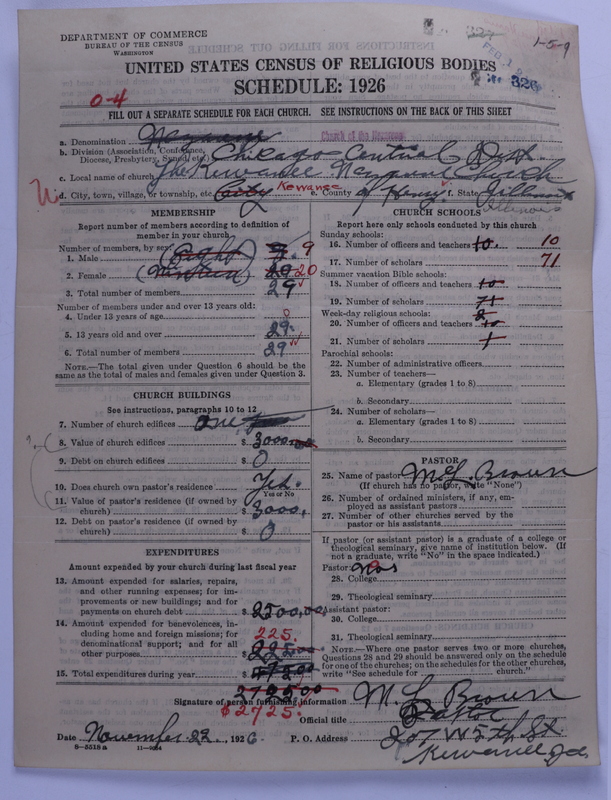 DEPARTMENT OF COMMERCE
BUREAU OF THE CENSUS
WASHINGTON
FEB
326
1-5-9
UNITED STATES CENSUS OF RELIGIOUS BODIES
SCHEDULE: 1926
0-4
FILL OUT A SEPARATE SCHEDULE FOR EACH CHURCH. SEE INSTRUCTIONS ON THE BACK OF THIS SHEET
a. Denomination Nazarene Church of the Nazarene
b. Division (Association, Conference, Diocese, Presbytery, Synod, etc.) Chicago-Central Dist.
c. Local name of church The Kewanee Nazarene Church
d. City, town, village, or township, etc. City Kewanee e. County of Henry f. State Illinois
Illinois
MEMBERSHIP
Report number of members according to definition of member in your church
Number of members, by sex:
1. Male (Eight) 9
2. Female 20
3. Total number of members 29
Number of members under and over 13 years old:
4. Under 13 years of age 0
5. 13 years old and over 29
6. Total number of members 29
NOTE.—The total given under Question 6 should be same as the total of males and females given under Question 3.
CHURCH BUILDINGS
See instructions, paragraphs 10 to 12
7. Number of church edifices one
8. Value of church edifices $ 3000
9. Debt on church edifices $ 0
10. Does church own pastor's residence Yes.
Yes or No
11. Value of pastor's residence (if owned by church) $ 3000.
12. Debt on pastor's residence (if owned by church) $ 0
EXPENDITURES
Amount expended by your church during last fiscal year
13. Amount expended for salaries, repairs, and other running expenses; for improvements or new buildings; and for payments on church debt $ 2500.00
14. Amount expended for benevolences, including home and foreign missions; for denominational support; and for all other purposes $ 225.
15. Total expenditures during year $
$2725.
CHURCH SCHOOLS
Report here only schools conducted by this church
Sunday schools:
16. Number of officers and teachers 10. 10
17. Number of scholars 71
Summer vacation Bible schools:
18. Number of officers and teachers 10
19. Number of scholars 71
Week-day religious schools:
20. Number of officers and teachers 10
21. Number of scholars
Parochial schools:
22. Number of administrative officers
23. Number of teachers—
a. Elementary (grades 1 to 8)
b. Secondary
24. Number of scholars—
a. Elementary (grades 1 to 8)
b. Secondary
PASTOR
25. Name of pastor M. L. Brown
(If church has no pastor, write "None")
26. Number of ordained ministers, if any, employed as assistant pastors
27. Number of other churches served by the pastor or his assistants
If pastor (or assistant pastor) is a graduate of a college or theological seminary, give name of institution below. (If not a graduate, write "No" in the space indicated.)
Pastor:
28. College
29. Theological seminary
Assistant pastor:
30. College
31. Theological seminary
NOTE.—Where one pastor serves two or more churches, Questions 28 and 29 should be answered only on the schedule for one of the churches; on the schedules for the other churches, write "See schedule for church."
Signature of person furnishing information M. L. Brown
Official title Pastor
Date November 22, 1926 P. O. Address 207 W 5th St.
Kewanee, Ill.
8—5518a 11—9064